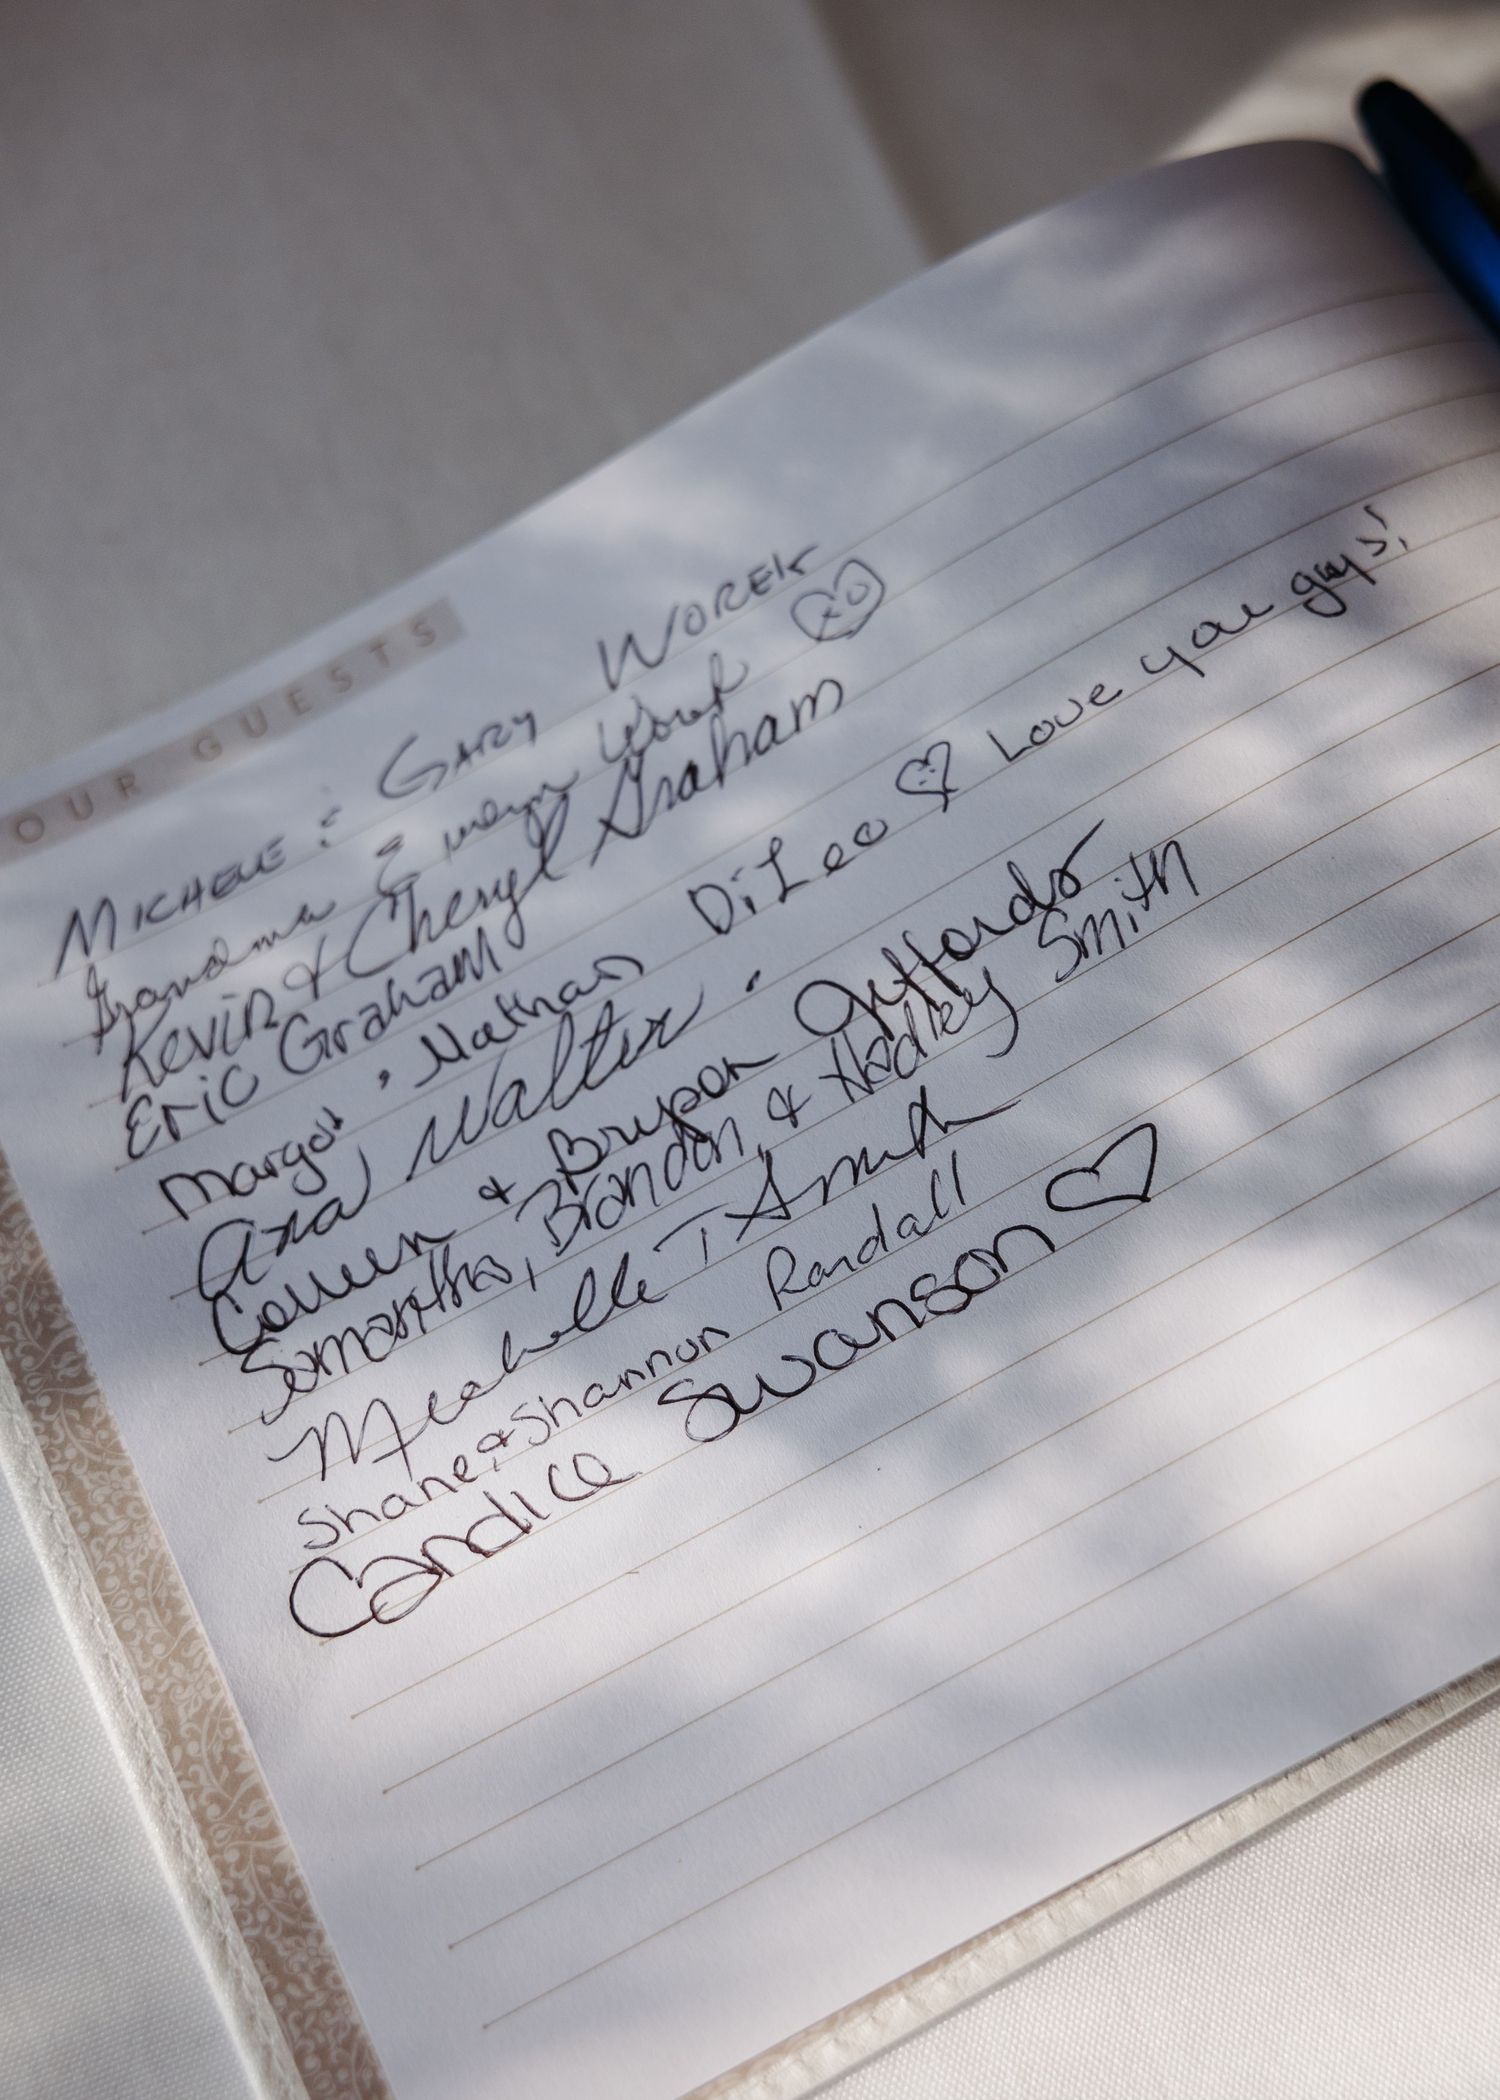 OUR GUESTS
MICHELE & GARY WOREK
Grandma & Worek xo
Kevin & Cheryl Graham
Eric Graham
Margot, Nathan DiLeo Love you guys!
Axa Walter.
Colleen & Bryson Jeffords
Samantha, Brandon, & Hadley Smith
Mechelle T Smith
Shane & Shannon Randall
Candice Swanson